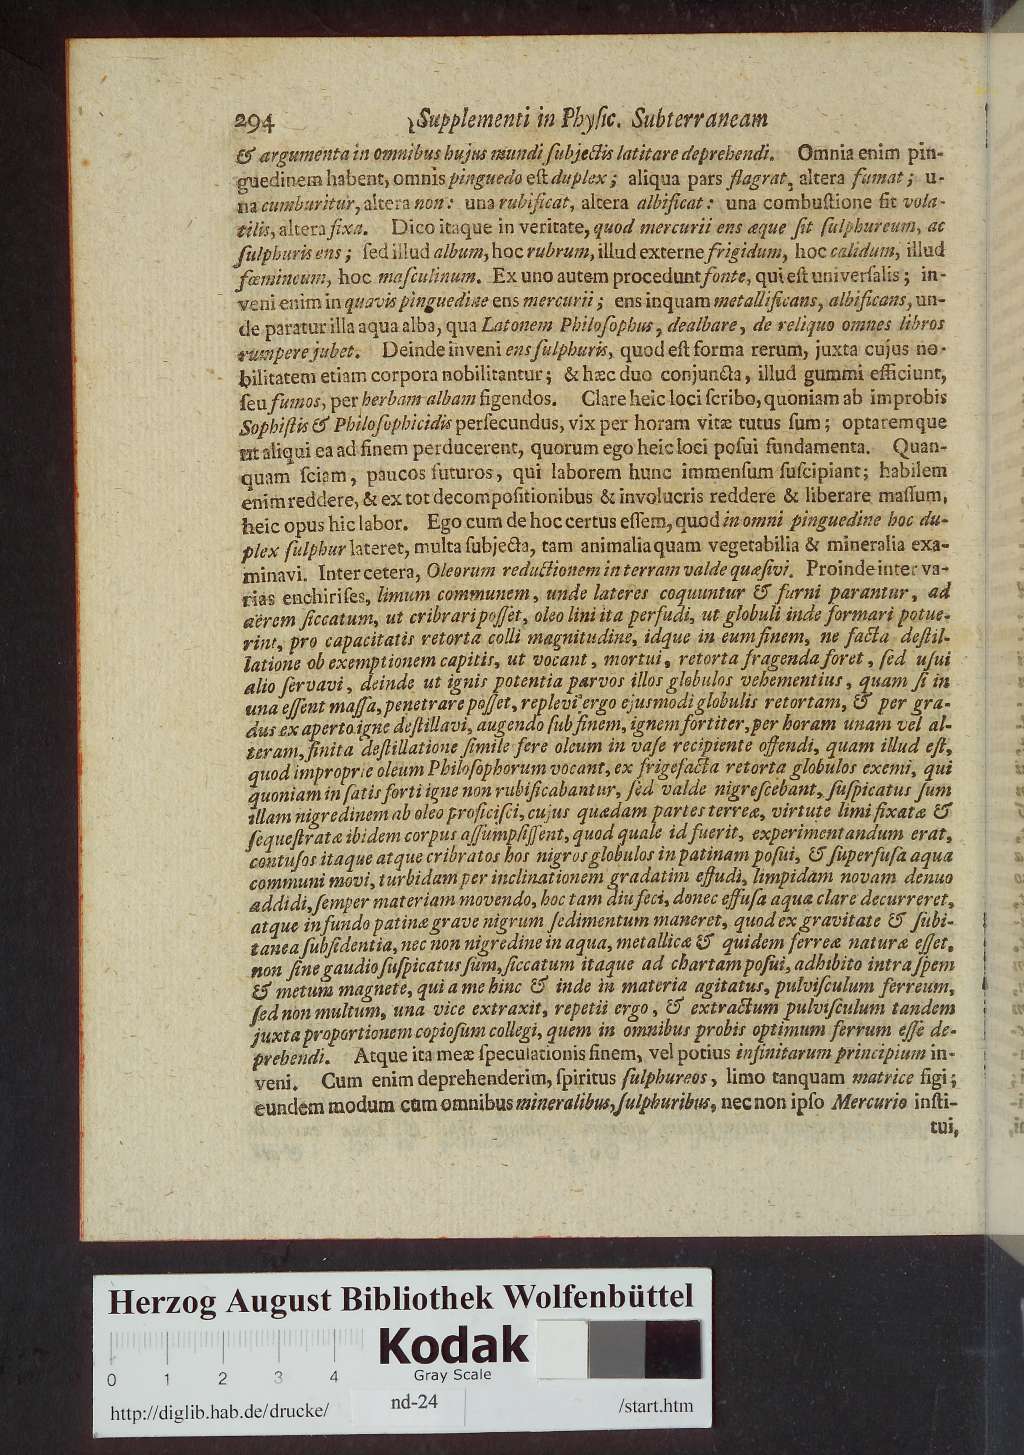 294 Supplementi in Phyſic. Subterraneam
& argumenta in omnibus hujus mundi ſubjectis latitare deprehendi. Omnia enim pin-
guedinem habent, omnis pinguedo eſt duplex; aliqua pars flagrat, altera fumat; u-
na cumburitur, altera non: una rubificat, altera albificat: una combuſtione fit vola-
tilis, altera fixa. Dico itaque in veritate, quod mercurii ens æque ſit ſulphureum, ac
ſulphuris ens; ſed illud album, hoc rubrum, illud externe frigidum, hoc calidum, illud
fœmineum, hoc maſculinum. Ex uno autem procedunt fonte, qui eſt univerſalis; in-
veni enim in quavis pinguedine ens mercurii; ens inquam metallificans, albificans, un-
de paratur illa aqua alba, qua Latonem Philoſophus, dealbare, de reliquo omnes libros
rumpere jubet. Deinde inveni ens ſulphuris, quod eſt forma rerum, juxta cujus no-
bilitatem etiam corpora nobilitantur; & hæc duo conjuncta, illud gummi efficiunt,
ſeu fumos, per herbam albam figendos. Clare heic loci ſcribo, quoniam ab improbis
Sophiſtis & Philoſophicidis perſecundus, vix per horam vitæ tutus ſum; optaremque
ut aliqui ea ad finem perducerent, quorum ego heic loci poſui fundamenta. Quan-
quam ſciam, paucos futuros, qui laborem hunc immenſum ſuſcipiant; habilem
enim reddere, & ex tot decompoſitionibus & involucris reddere & liberare maſſum,
heic opus hic labor. Ego cum de hoc certus eſſem, quod in omni pinguedine hoc du-
plex ſulphur lateret, multa ſubjecta, tam animalia quam vegetabilia & mineralia exa-
minavi. Inter cetera, Oleorum reductionem in terram valde quæſivi. Proinde inter va-
rias enchiriſes, limum communem, unde lateres coquuntur & furni parantur, ad
aërem ſiccatum, ut cribrari poſſet, oleo lini ita perfudi, ut globuli inde formari potue-
rint, pro capacitatis retortæ colli magnitudine, idque in eum finem, ne facta deſtil-
latione ob exemptionem capitis, ut vocant, mortui, retorta fragenda foret, ſed uſui
alio ſervavi, deinde ut ignis potentia parvos illos globulos vehementius, quam ſi in
una eſſent maſſa, penetrare poſſet, replevi ergo ejusmodi globulis retortam, & per gra-
dus ex aperto igne deſtillavi, augendo ſub finem, ignem fortiter, per horam unam vel al-
teram, finita deſtillatione ſimile fere oleum in vaſe recipiente offendi, quam illud eſt,
quod improprie oleum Philoſophorum vocant, ex frigefacta retorta globulos exemi, qui
quoniam in ſatis forti igne non rubificabantur, ſed valde nigreſcebant, ſuſpicatus ſum
illam nigredinem ab oleo proficiſci, cujus quædam partes terreæ, virtute limi fixatæ &
ſequeſtratæ ibidem corpus aſſumpſiſſent, quod quale id fuerit, experimentandum erat,
contuſos itaque atque cribratos hos nigros globulos in patinam poſui, & ſuperfuſa aqua
communi movi, turbidam per inclinationem gradatim effudi, limpidam novam denuo
addidi, ſemper materiam movendo, hoc tam diu feci, donec effuſa aqua clare decurreret,
atque in fundo patinæ grave nigrum ſedimentum maneret, quod ex gravitate & ſubi-
tanea ſubſidentia, nec non nigredine in aqua, metallicæ & quidem ferreæ naturæ eſſet,
non ſine gaudio ſuſpicatus ſum, ſiccatum itaque ad chartam poſui, adhibito intra ſpem
& metum magnete, qui a me hinc & inde in materia agitatus, pulviſculum ferreum,
ſed non multum, una vice extraxit, repetii ergo, & extractum pulviſculum tandem
juxta proportionem copioſum collegi, quem in omnibus probis optimum ferrum eſſe de-
prehendi. Atque ita meæ ſpeculationis finem, vel potius infinitarum principium in-
veni. Cum enim deprehenderim, ſpiritus ſulphureos, limo tanquam matrice figi;
eundem modum cum omnibus mineralibus, ſulphuribus, nec non ipſo Mercurio inſti-
tui,
Herzog August Bibliothek Wolfenbüttel
Kodak
Gray Scale
0 1 2 3 4
http://diglib.hab.de/drucke/ nd-24 /start.htm